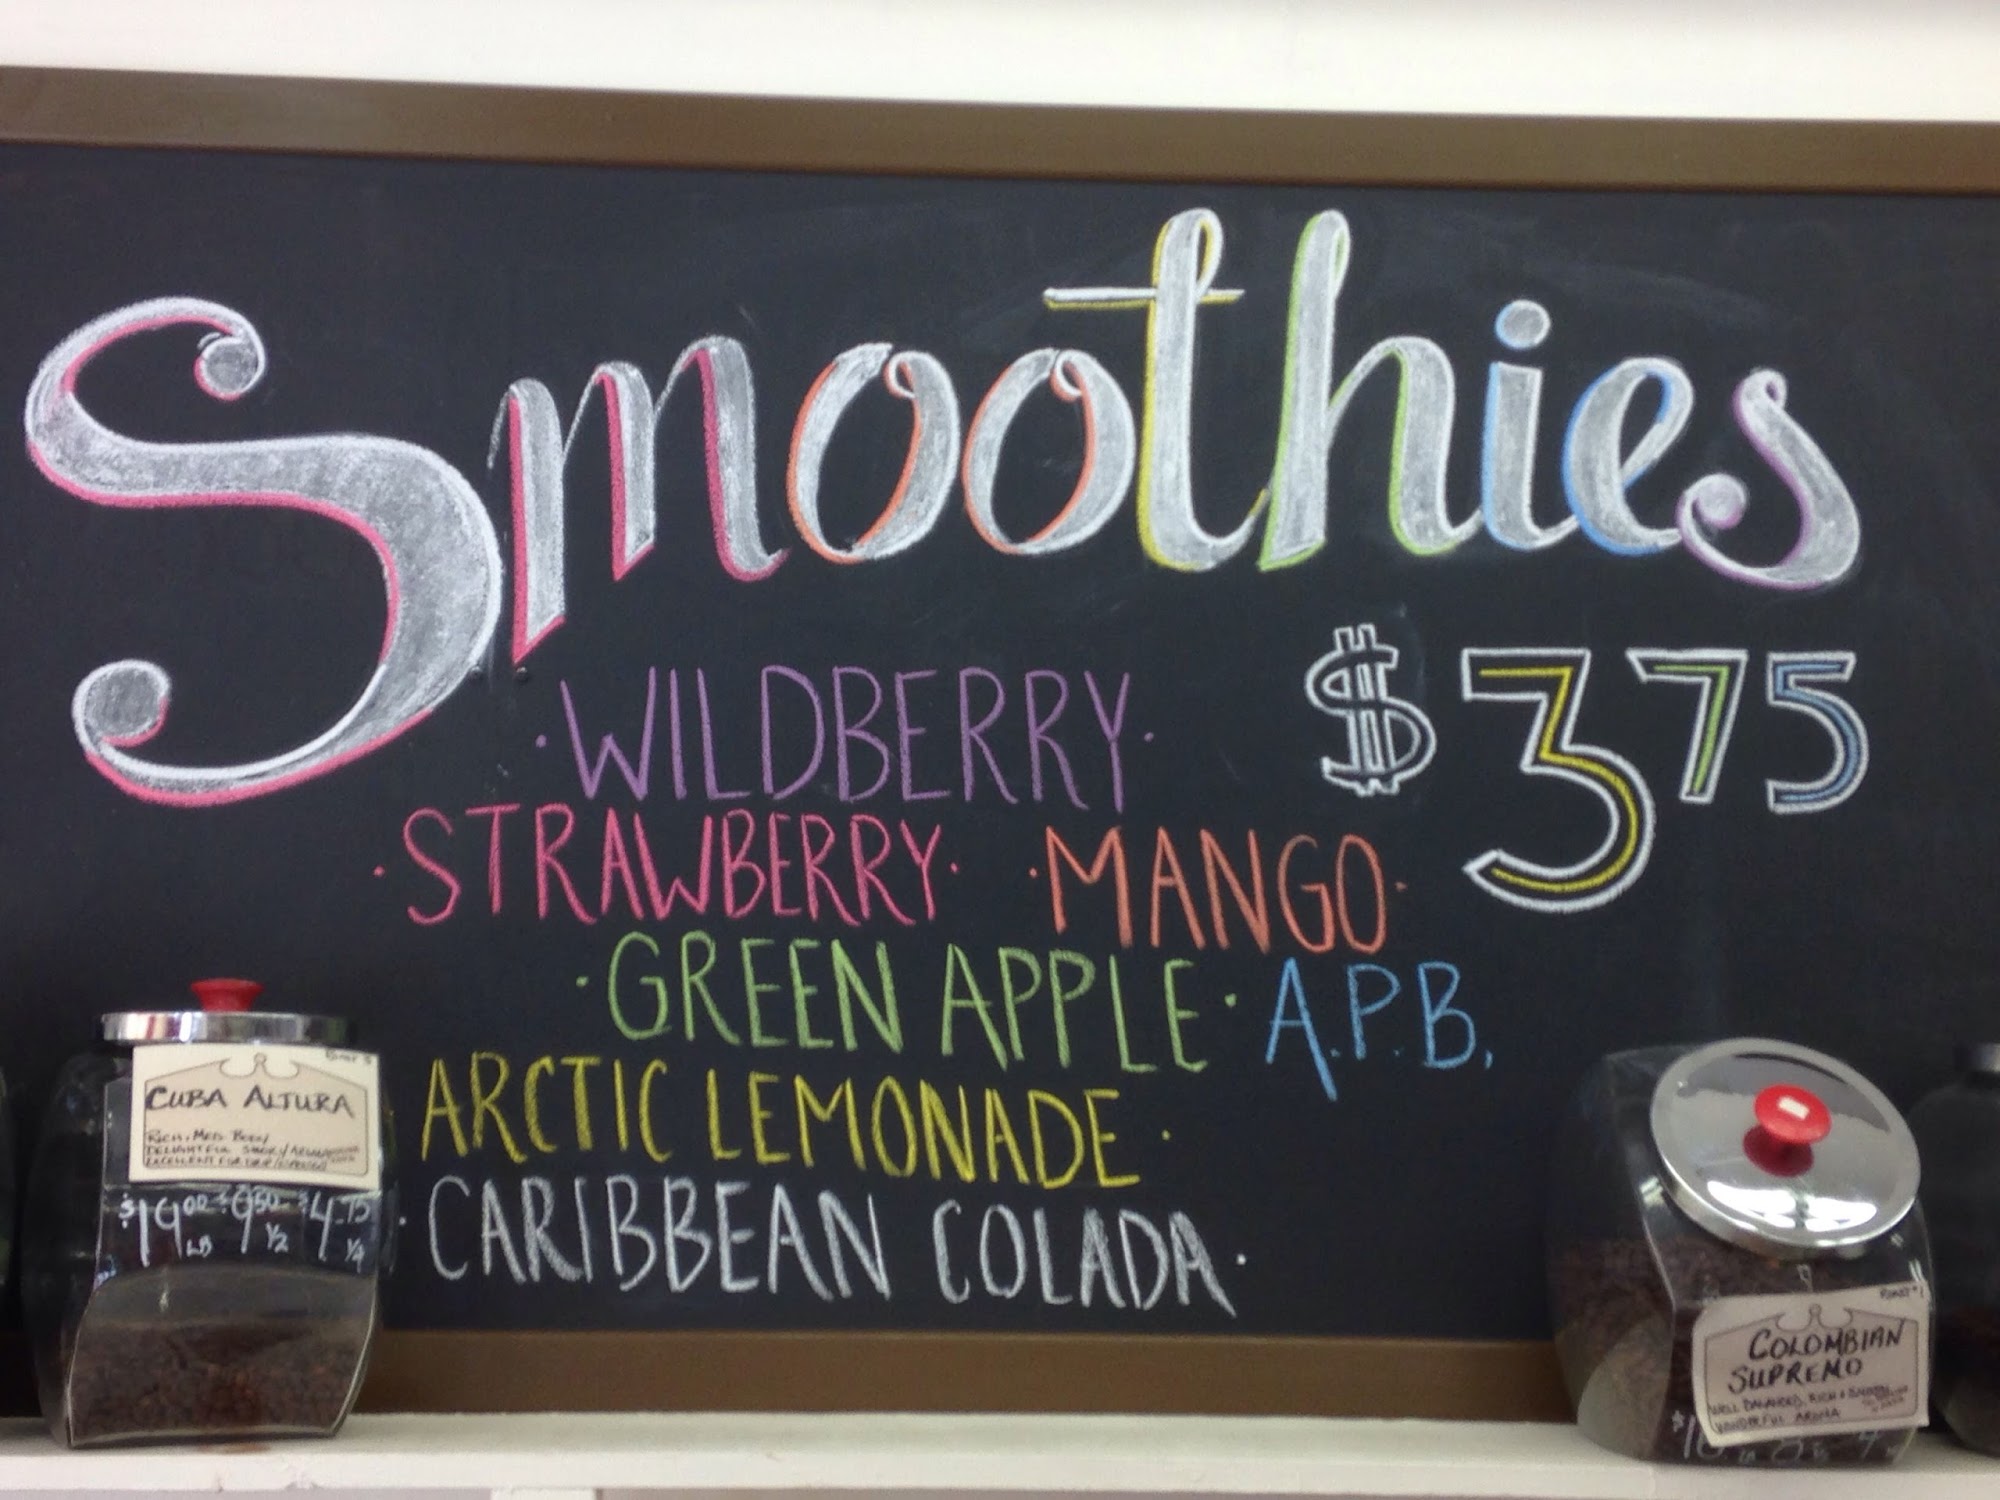 Smoothies
$3.75
·WILDBERRY·
·STRAWBERRY· ·MANGO·
·GREEN APPLE· A.P.B.
ARCTIC LEMONADE·
·CARIBBEAN COLADA·
ROAST
CUBA ALTURA
RICH, MED BODY
DELIGHTFUL
EXCELLENT FOR DRIP
$19.00 LB $9.50 1/2 $4.75 1/4
ROAST #1
COLOMBIAN
SUPREMO
WELL BALANCED, RICH &
WONDERFUL AROMA